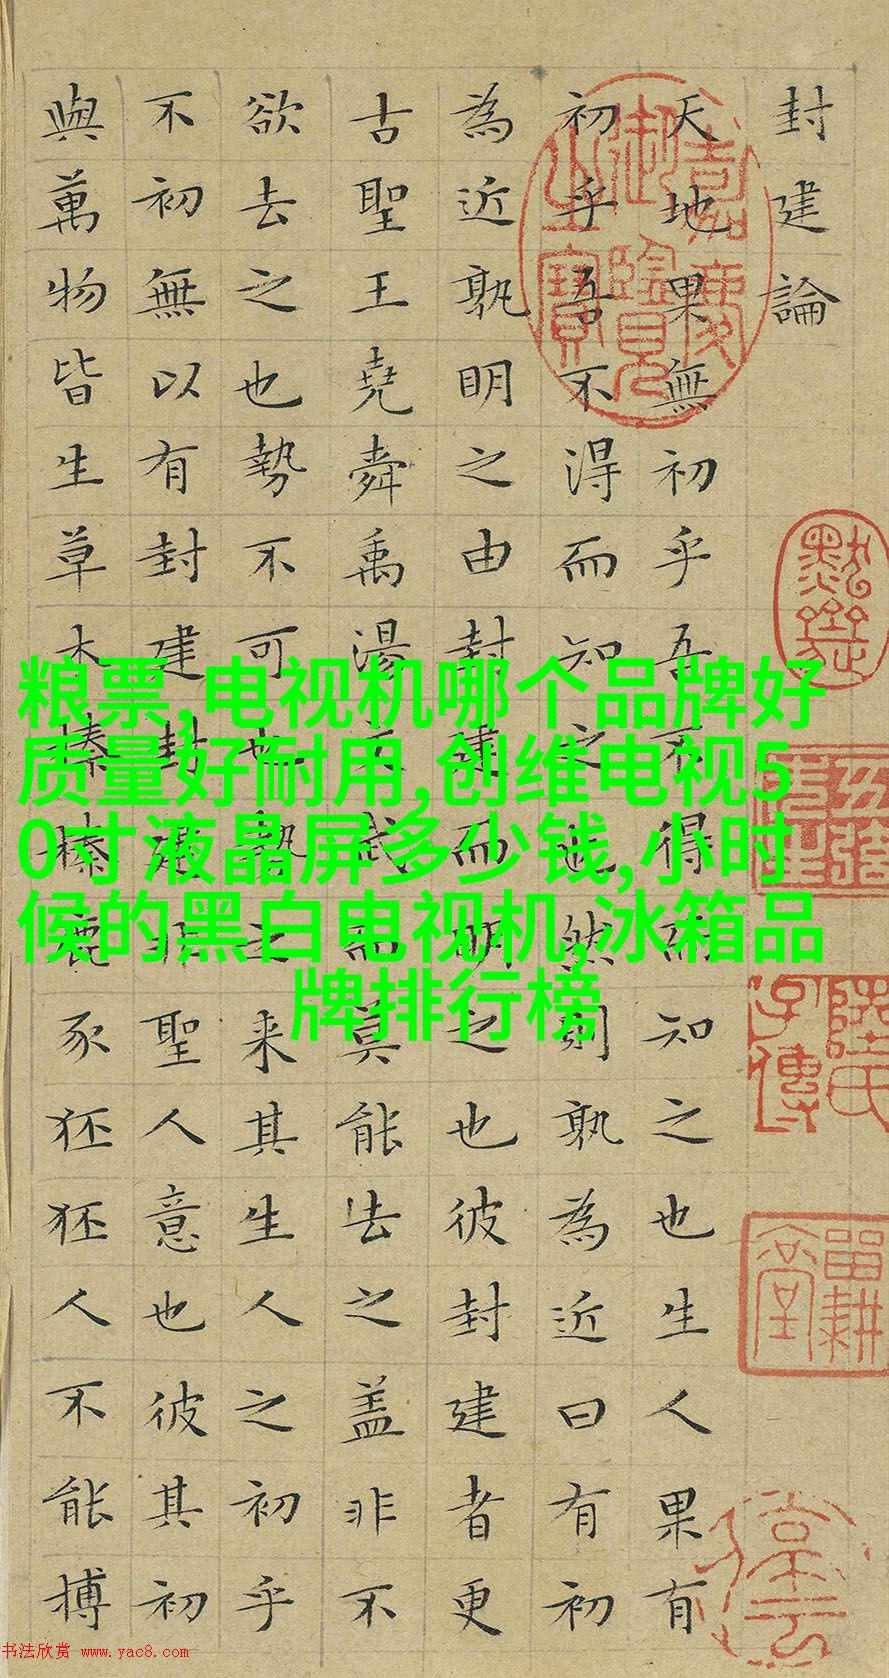 封建論
天地果無初乎吾不得而知之也生人果有
初乎吾不得而知之也然則孰為近曰有初
為近孰明之由封建而明之也彼封建者更
古聖王堯舜禹湯文武而莫能去之盖非不
欲去之也勢不可也勢之来其生人之初乎
不初無以有封建封建非聖人意也彼其初
與萬物皆生草木榛榛鹿豕狉狉人不能搏
嘉慶
御覽
之寶
粮票,电视机哪个品牌好
质量好耐用,创维电视5
0寸液晶屏多少钱,小时
候的黑白电视机,冰箱品
牌排行榜
书法欣赏 www.yac8.com